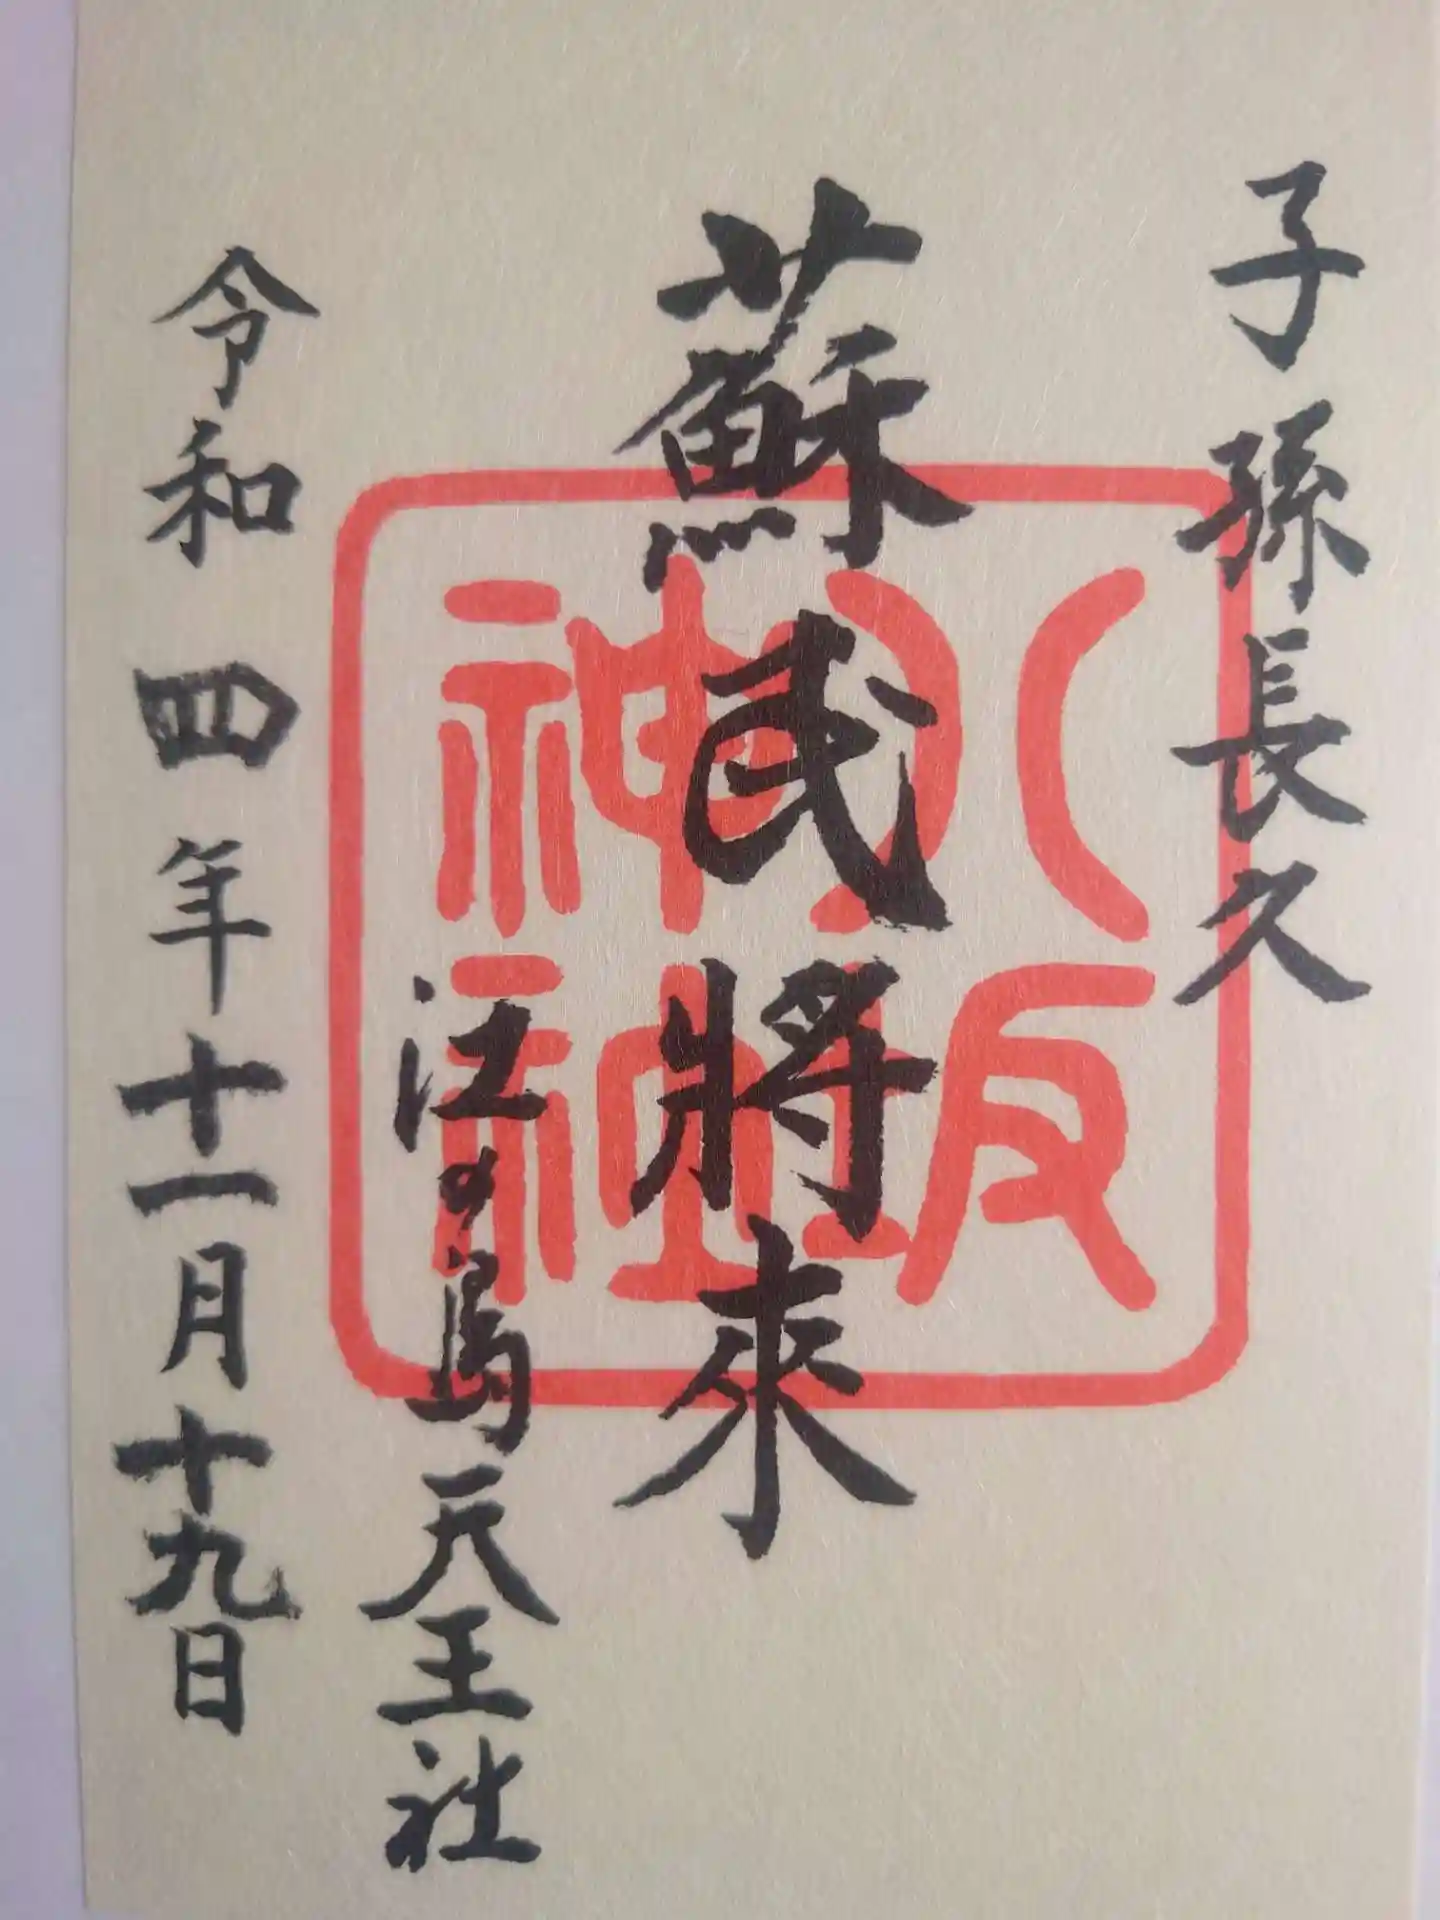 子孫長久
蘇民將來
江の島天王社
令和四年十一月十九日
八坂
神社